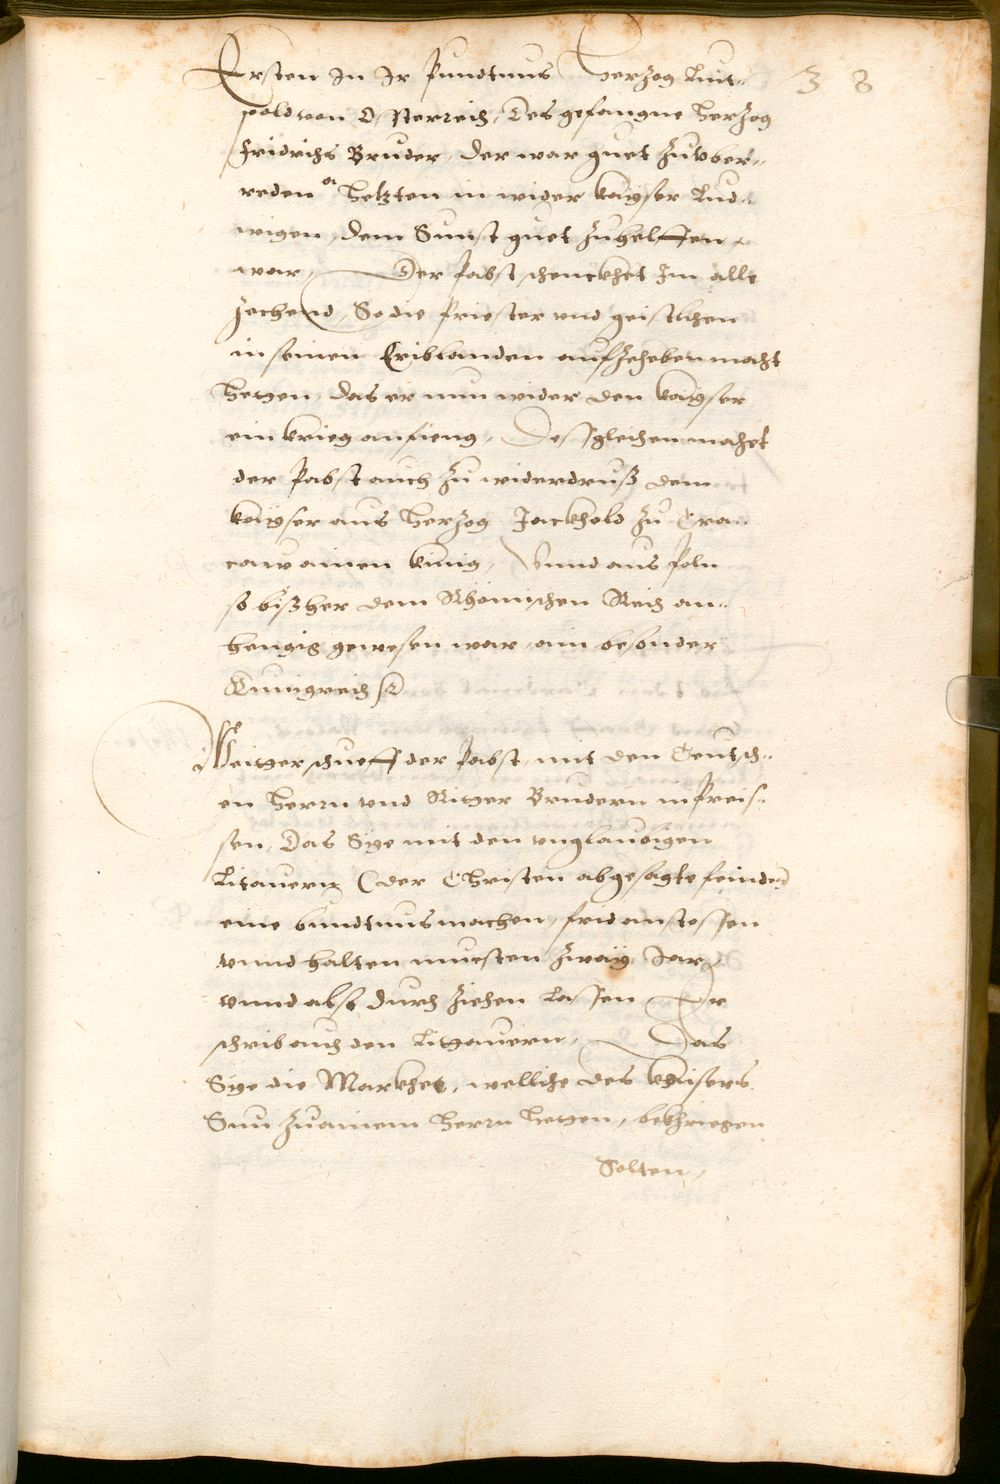 Ersten In Ir Pundtnus Herzog Leut-
pold von Össterreich, Des gefangne Herzog
Fridrichs Bruder, der war guet zuvber-
reden Hetzten in wider Kaÿser Lud-
wigen, dem Sunst guet zuhelffen
war, Der Pabst schenckhet Im alle
Zechend, So die Priester vnd geistlichen
in seinen Eriblanden aufzeheben macht
hetten, das er nun wider den Kaÿser
ein Krieg anfieng, Dessgleichen machet
der Pabst auch zu widerdruß dem
Kaÿser aus Herzog Jackhold zu Cra-
caw ainen Künig, Vnnd aus Poln
so bißher dem Rhömischen Reich an-
hengig gewesen war, ain besonder
Künigreich
Weitter schueff der Pabst, mit den Teutsch-
en Herrn vnd Ritter Brudern in Preis-
sen, Das Sye mit den vnglaubigen
Litauern (der Christen abgesagte feindt)
eine bundtnus machen, frid anstossen
vnnd halten muesten zwaÿ Jar,
vnnd also durch ziehen lassen Er
schrib auch den Littauern, Das
Sye die Markhet, welliche des Kaisers
Sun zu ainem Herrn hetten, bekhriegen
Solten,
38